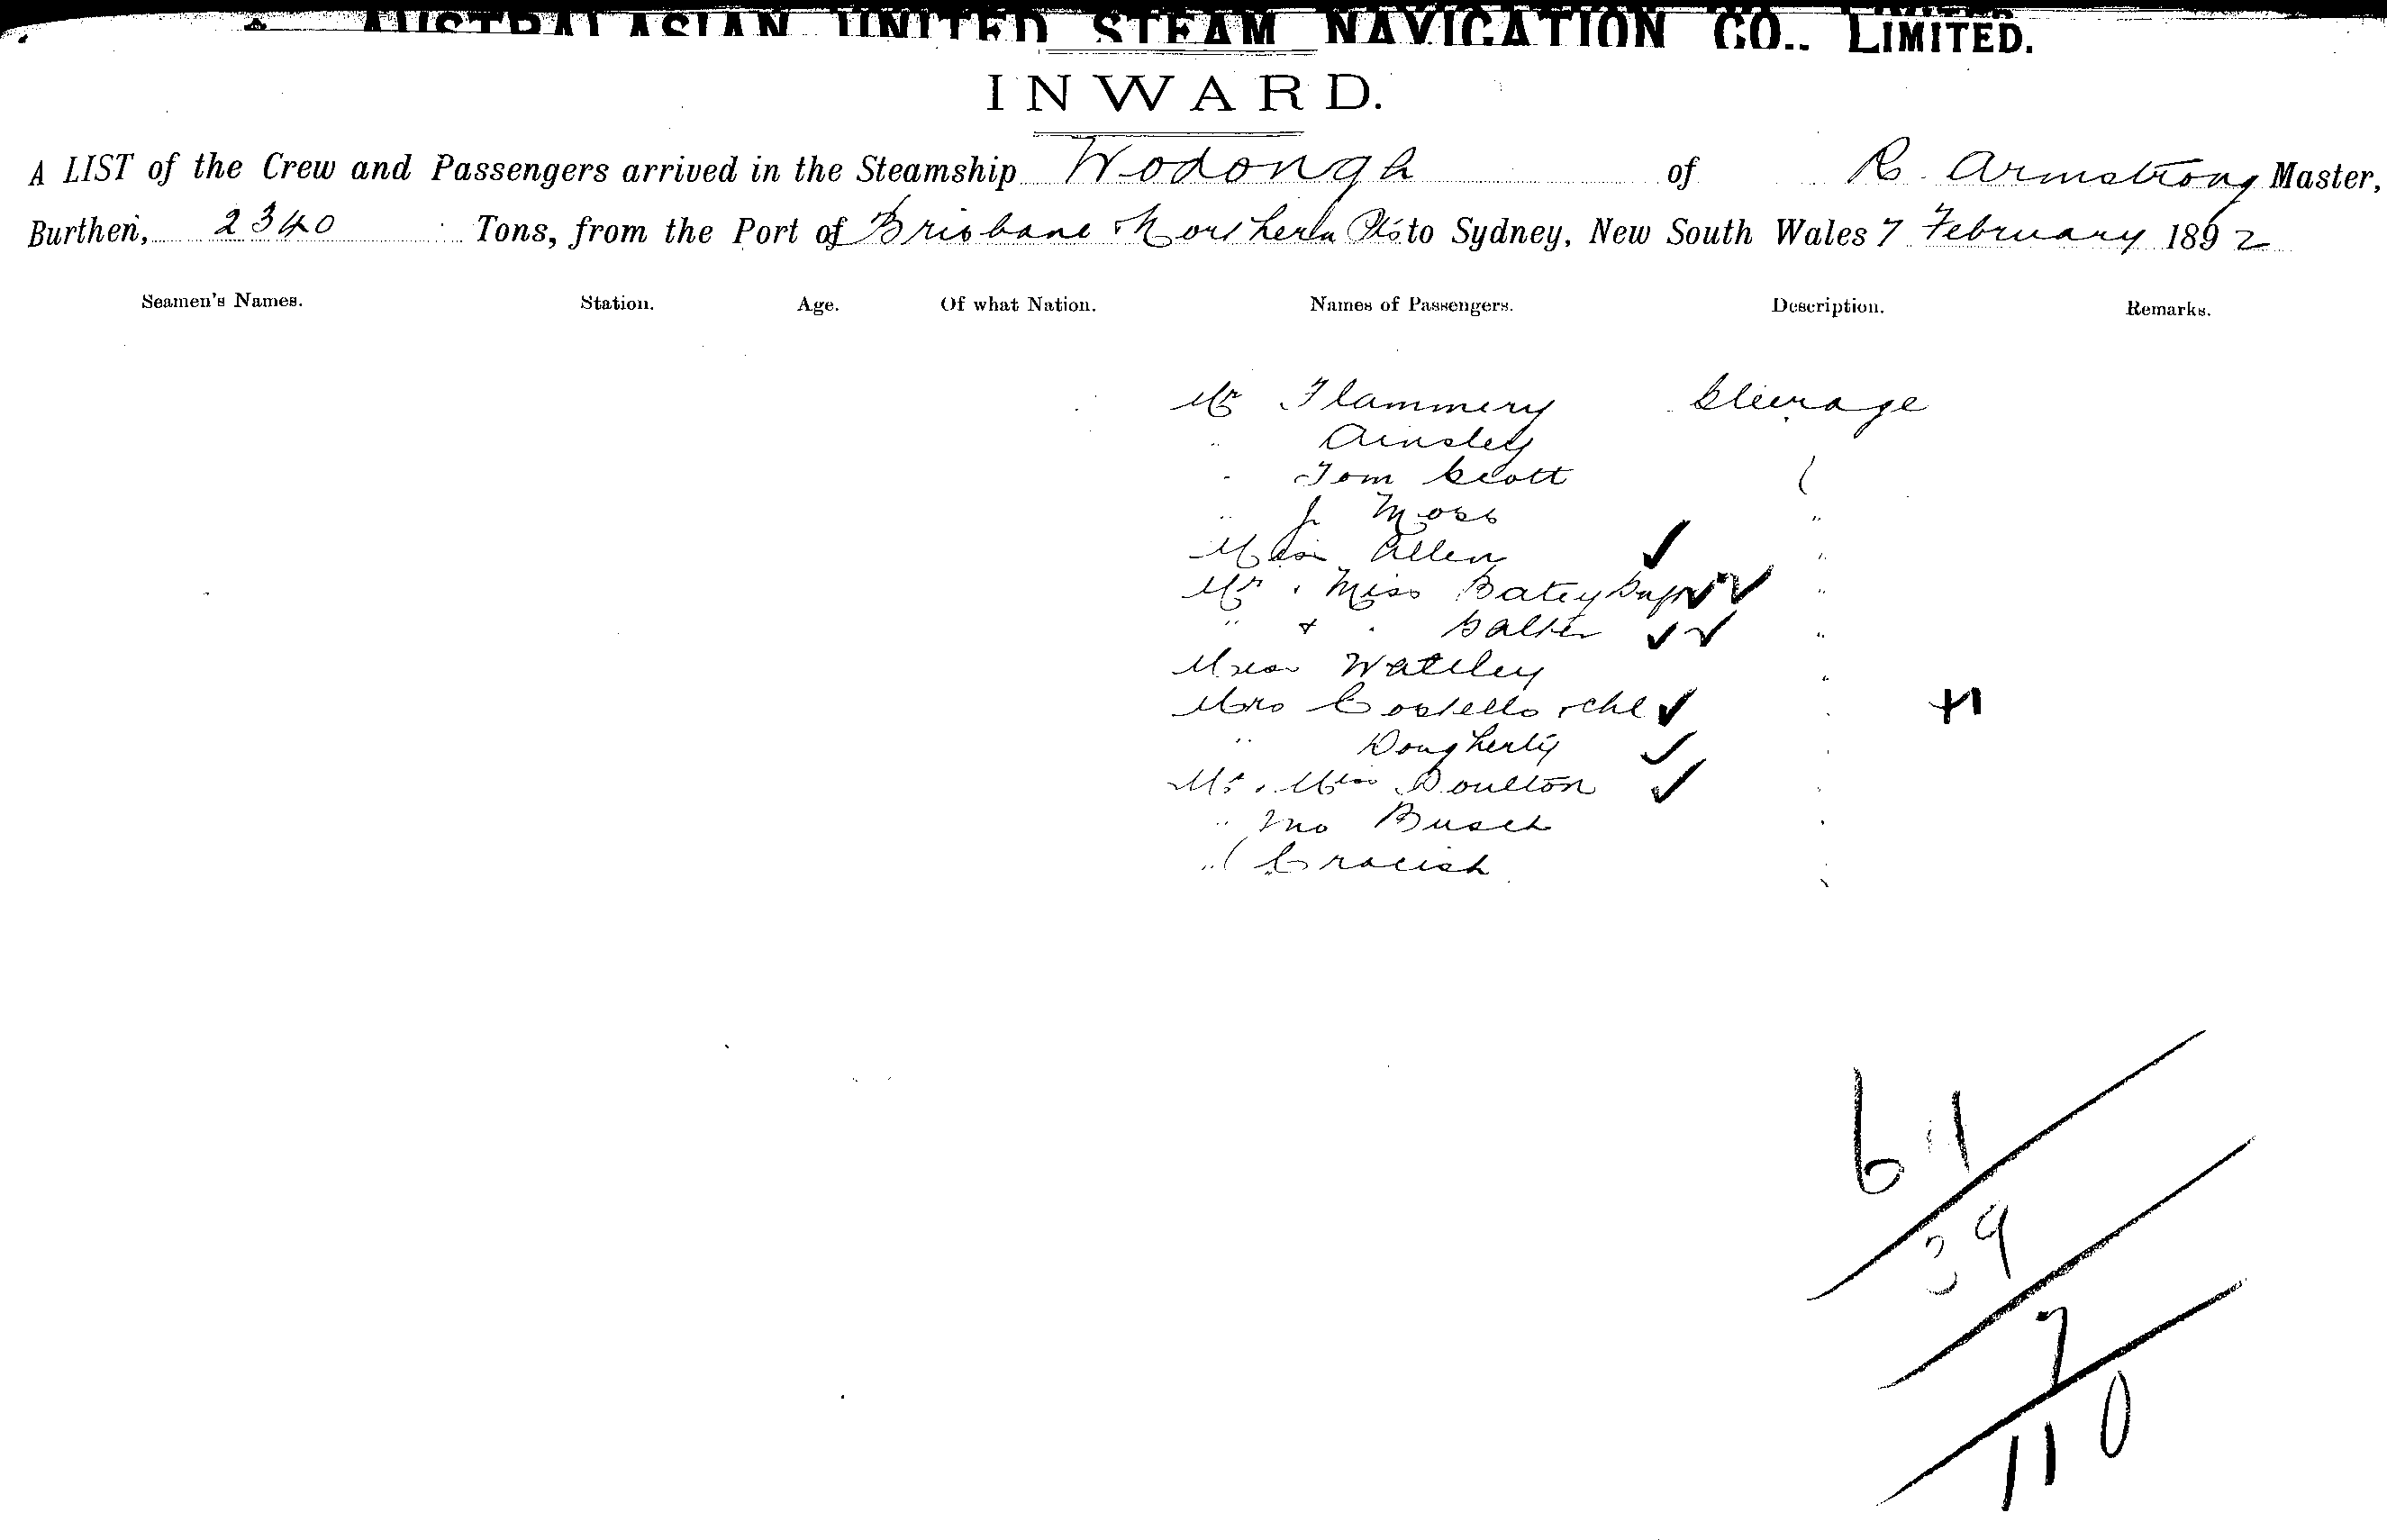 AUSTRALASIAN UNITED STEAM NAVIGATION CO., LIMITED.
INWARD.
A LIST of the Crew and Passengers arrived in the Steamship Wodonga of R. Armstrong Master,
Burthen, 2340 Tons, from the Port of Brisbane & Northern Pts to Sydney, New South Wales 7 February 1892
Seamen's Names. Station. Age. Of what Nation. Names of Passengers. Description. Remarks.
Mr Flammery Steerage
" Ainsley
" Tom Scott
" J Moss "
Miss Allen "
Mr & Miss Batey "
" & " Salter "
Miss Wattley "
Mrs Costello & chl " +1
" Dougherty "
Mr & Miss Doulton "
" Jno Busch "
"
61
39
110